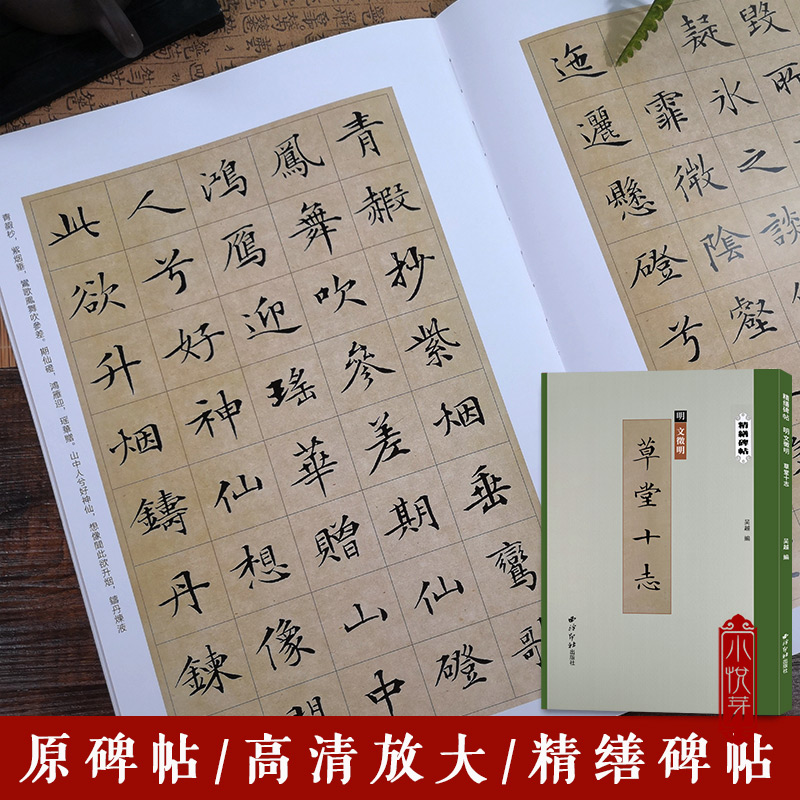 毀所
疑氷之談
霏微陰壑
迤邐懸磴兮
青赮抄紫烟垂鸞歌
鳳舞吹參差期仙磴
鴻鴈迎瑤華贈山中
人兮好神仙想像聞
此欲升烟鑄丹鍊
青赮杪，紫烟垂，鸞歌鳳舞吹參差。期仙磴，鴻雁迎，瑶華贈。山中人兮好神仙，想像聞此欲升烟，鑄丹煉液
精繕碑帖
明 文徵明
草堂十志
吴越 編
西泠印社出版社
精繕碑帖 明 文徵明 草堂十志 吴越 編
小悦芽
原碑帖/高清放大/精缮碑帖